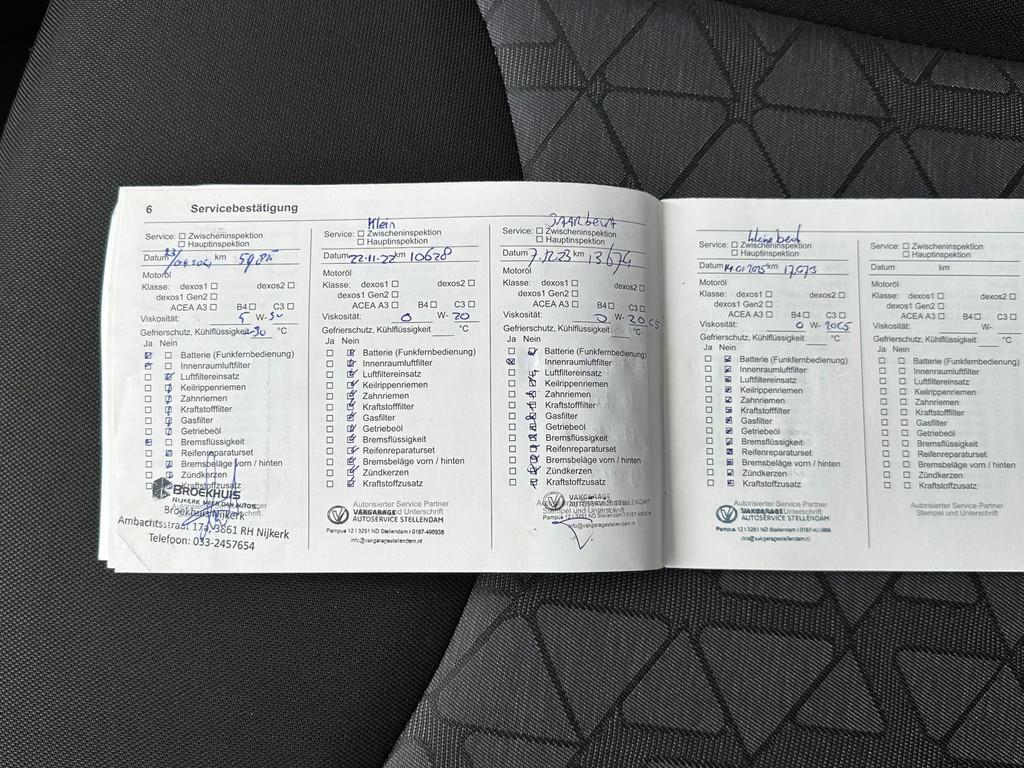 6 Servicebestätigung
Service: ☐ Zwischeninspektion
☐ Hauptinspektion
Datum km
Motoröl
Klasse: dexos1 ☐ dexos2 ☐
dexos1 Gen2 ☐
ACEA A3 ☐ B4 ☐ C3 ☐
Viskosität: 5 W- 30
Gefrierschutz, Kühlflüssigkeit -30 °C
Ja Nein
Batterie (Funkfernbedienung)
Innenraumluftfilter
Luftfiltereinsatz
Keilrippenriemen
Zahnriemen
Kraftstofffilter
Gasfilter
Getriebeöl
Bremsflüssigkeit
Reifenreparaturset
Bremsbeläge vorn / hinten
Zündkerzen
Kraftstoffzusatz
BROEKHUIS
NIJKERK MEER DAN AUTO'S
Broekhuis Nijkerk
Ambachtsstraat 17a, 3861 RH Nijkerk
Telefoon: 033-2457654
Klein
Service: ☐ Zwischeninspektion
☐ Hauptinspektion
Datum 22-11-22 km 10628
Motoröl
Klasse: dexos1 ☐ dexos2 ☐
dexos1 Gen2 ☐
ACEA A3 ☐ B4 ☐ C3 ☐
Viskosität: 0 W- 20
Gefrierschutz, Kühlflüssigkeit °C
Ja Nein
Batterie (Funkfernbedienung)
Innenraumluftfilter
Luftfiltereinsatz
Keilrippenriemen
Zahnriemen
Kraftstofffilter
Gasfilter
Getriebeöl
Bremsflüssigkeit
Reifenreparaturset
Bremsbeläge vorn / hinten
Zündkerzen
Kraftstoffzusatz
Autorisierter Service Partner
Stempel und Unterschrift
VAKGARAGE
AUTOSERVICE STELLENDAM
Pampus 12 I 3251 ND Stellendam I 0187-496938
info@vakgaragestellendam.nl
JAARbeurt
Service: ☐ Zwischeninspektion
☐ Hauptinspektion
Datum 7.12.23 km 13674
Motoröl
Klasse: dexos1 ☐ dexos2 ☐
dexos1 Gen2 ☐
ACEA A3 ☐ B4 ☐ C3 ☐
Viskosität: 0 W- 20 C5
Gefrierschutz, Kühlflüssigkeit °C
Ja Nein
Batterie (Funkfernbedienung)
Innenraumluftfilter
Luftfiltereinsatz
Keilrippenriemen
Zahnriemen
Kraftstofffilter
Gasfilter
Getriebeöl
Bremsflüssigkeit
Reifenreparaturset
Bremsbeläge vorn / hinten
Zündkerzen
Kraftstoffzusatz
Autorisierter Service Partner
Stempel und Unterschrift
VAKGARAGE
AUTOSERVICE STELLENDAM
Pampus 12 I 3251 ND Stellendam I 0187-496938
info@vakgaragestellendam.nl
kleine beurt
Service: ☐ Zwischeninspektion
☐ Hauptinspektion
Datum 14.01.2025 km 17.073
Motoröl
Klasse: dexos1 ☐ dexos2 ☐
dexos1 Gen2 ☐
ACEA A3 ☐ B4 ☐ C3 ☐
Viskosität: 0 W- 20C5
Gefrierschutz, Kühlflüssigkeit °C
Ja Nein
Batterie (Funkfernbedienung)
Innenraumluftfilter
Luftfiltereinsatz
Keilrippenriemen
Zahnriemen
Kraftstofffilter
Gasfilter
Getriebeöl
Bremsflüssigkeit
Reifenreparaturset
Bremsbeläge vorn / hinten
Zündkerzen
Kraftstoffzusatz
Autorisierter Service Partner
Stempel und Unterschrift
VAKGARAGE
AUTOSERVICE STELLENDAM
Pampus 12 I 3251 ND Stellendam I 0187-496938
info@vakgaragestellendam.nl
Service: ☐ Zwischeninspektion
☐ Hauptinspektion
Datum km
Motoröl
Klasse: dexos1 ☐ dexos2 ☐
dexos1 Gen2 ☐
ACEA A3 ☐ B4 ☐ C3 ☐
Viskosität: W-
Gefrierschutz, Kühlflüssigkeit °C
Ja Nein
Batterie (Funkfernbedienung)
Innenraumluftfilter
Luftfiltereinsatz
Keilrippenriemen
Zahnriemen
Kraftstofffilter
Gasfilter
Getriebeöl
Bremsflüssigkeit
Reifenreparaturset
Bremsbeläge vorn / hinten
Zündkerzen
Kraftstoffzusatz
Autorisierter Service Partner
Stempel und Unterschrift